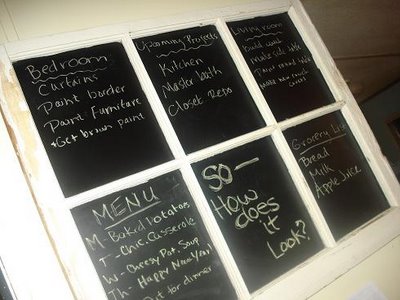 Bedroom
Curtains
Paint border
Paint Furniture
*Get brown paint
Upcoming Projects
Kitchen
Master bath
Closet Redo
Living room
Build wall
Make side table
Paint round table
couch
Grocery List
Bread
Milk
Apple Juice
MENU
M- Baked Potatoes
T- Chic. Casserole
W- Cheesy Pot. Soup
Th- Happy New Year!
Out for dinner
SO—
How
does
it
Look?